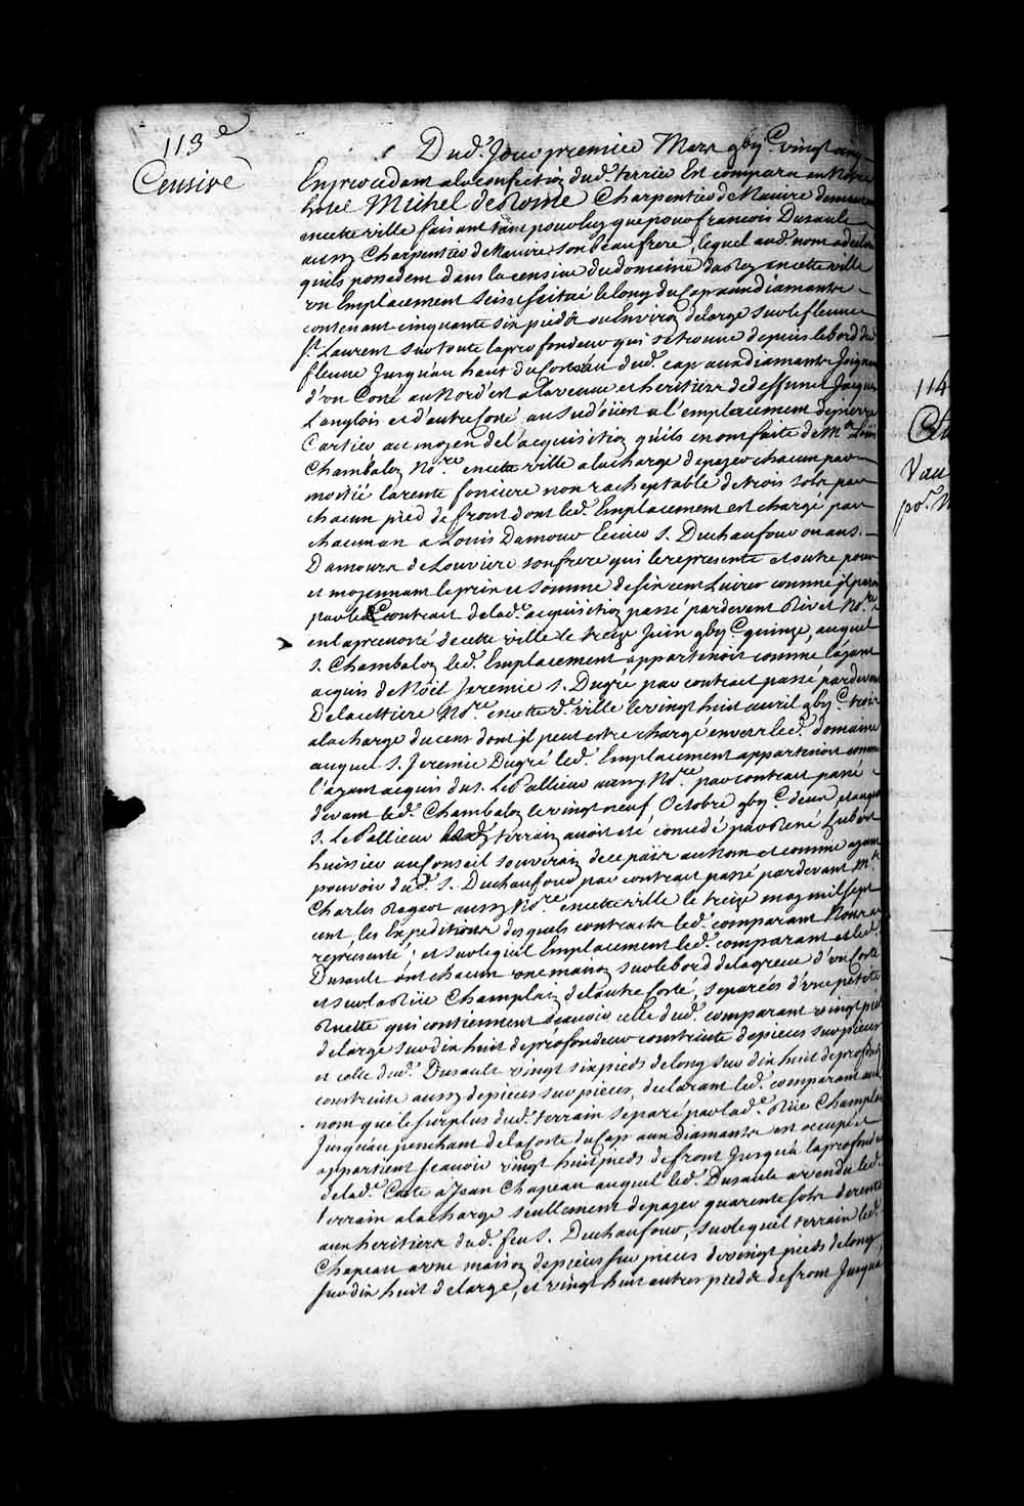 113e
Censive
Dud. Jour premier Mars gbijC vingt cinq
En procedant a la confection dud. terrier Est comparu en Notre
hotel Michel deRome Charpentier de Navire demeurant
en cette ville faisant tant pour luy que pour francois Dusault
aussy Charpentier de Navire son beau frere, lequel aud. nom a declaré
quils possedent dans la censive du domaine du Roy en cette ville
un Emplacement seis et scitué le long du Cap aux diamants
contenant cinquante six pieds ou Environ de large sur le fleuve
St. Laurent sur toute la profondeur qui se trouve depuis le bord du
fleuve Jusqu'au haut du costeau dud. cap aux diamants Joignant
d'un Costé au Nord'est a la veuve et heritiers de deffunct Jacques
Langlois et d'autre Costé au Sud'oüest a l'emplacement de pierre
Cartier au moyen de l'acquisition qu'ils en ont faite de Me. Loüis
Chambalon No.re en cette ville a la charge de payer chacun par
moitié la rente fonciere non racheptable de trois sols par
chacun pied de front dont led. Emplacement est chargé par
chacun an a Louis Damour Ecuier S. Duchaufour ou au S.
Damours de Louviere son frere qui le represente et outre pour
et moyennant le prix et somme de six cent Livres comme jl paroit
par le Contrait de lad. acquisition passé pardevant Rivet No.re
en la prevosté de cette ville le treize Juin gbijC quinze, auquel
S. Chambalon led. Emplacement appartenoit comme l'ayant
acquis de Nöel Jeremie S. Dugré par contract passé pardevant
Delacettiere No.re en cette d. ville le vingt huit avril gbijC trois
a la charge du cens dont jl peut estre chargé envers led. domaine
auquel S. Jeremie Dugré led. Emplacement appartenoit comme
l'ayant acquis du S. LePallieur aussy No.re par contract passé
devant led. Chambalon le vingt neuf Octobre gbijC deux et auquel
S. LePallieur led. terrain avoit eté concedé par René hubert
huissier au Conseil souverain de ce païs au Nom et comme ayant
pouvoir dud. S. Duchaufour par contract passé pardevant Me.
Charles Rageot aussy No.re en cette ville le treize may mil sept
cent, les Expeditions desquels contracts led. comparant Nous a
representé; et sur lequel Emplacement led. comparant et led.
Dusault ont chacun une maison sur le bord de la greve d'un Costé
et sur la Rüe Champlain de l'autre Costé, separées d'une petite
Ruette qui contiennent scavoir celle dud. comparant vingt pieds
de large sur dix huit de profondeur construite de pieces sur pieces
et celle dud. Dusault vingt six pieds de long sur dix huit de profond
construite aussy de pieces sur pieces, declarant led. comparant aud.
nom que le surplus dud. terrain separé par lad. Rüe Champlain
Jusqu'au penchant de la Coste du Cap aux diamants est occupé et
appartient scavoir vingt huit pieds de front Jusqu'à la profondeur
de lad. Coste a Jean Chapeau auquel led. Dusault a vendu led.
terrain a la charge seullement de payer quarente sols de rente
aux heritiers dud. feu S. Duchaufour, sur lequel terrain led.
Chapeau a une maison de pieces sur pieces de vingt pieds de long
sur dix huit de large, et vingt huit autres pieds de front Jusqu'a
114